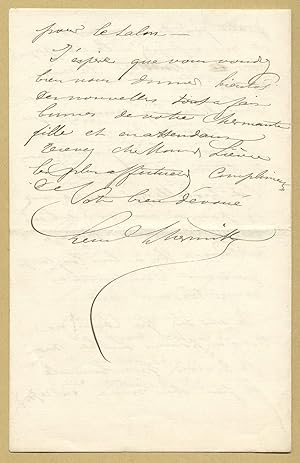 pour le Salon —
J'espère que vous voudrez
bien nous donner bientôt
des nouvelles tout à fait
bonnes de votre charmante
fille et en attendant
recevez cher Monsr Lièvre
les plus affectueux compliments
de
Votre bien dévoué
Lhermitte